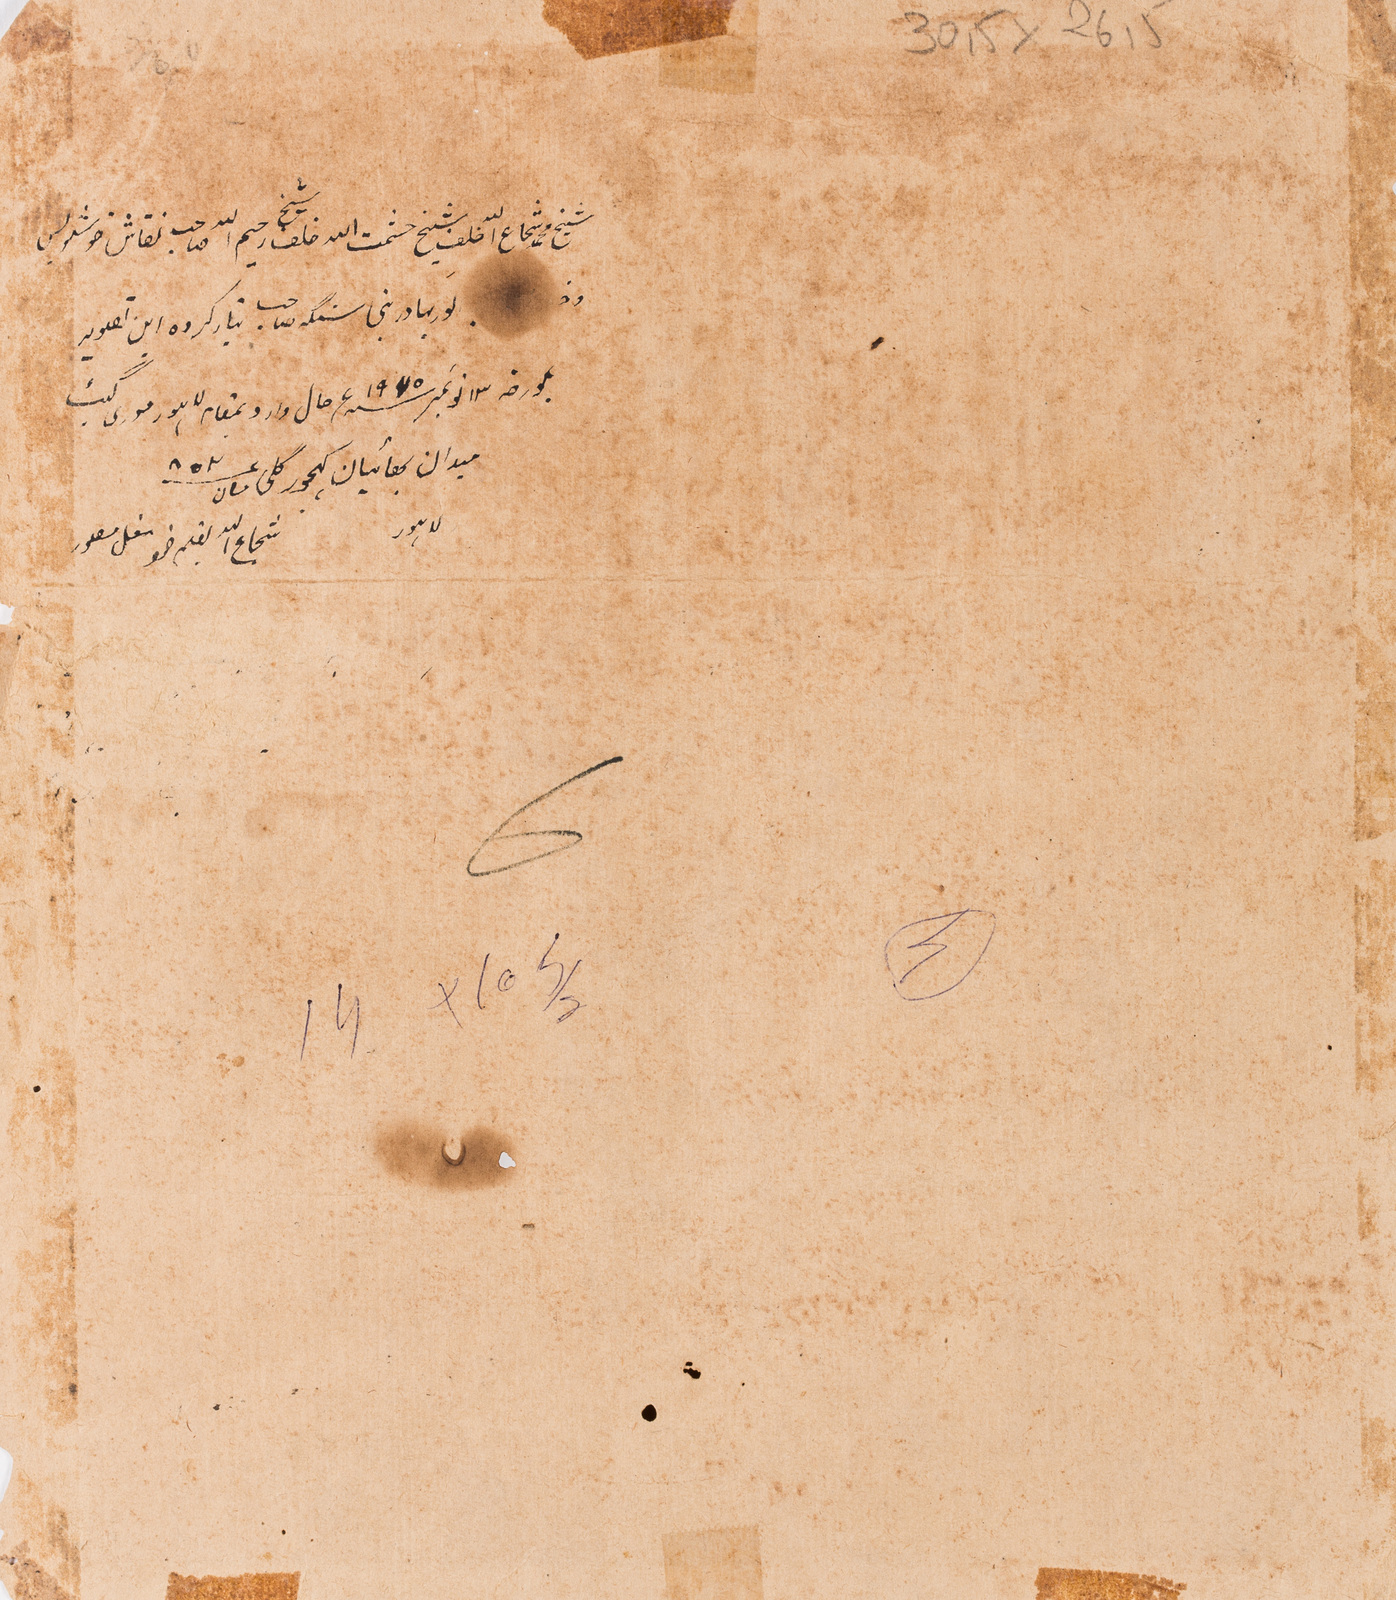 30,5 x 26,5
شیخ محمد شجاع اللہ خلف شیخ حشمت اللہ خلف شیخ رحیم اللہ صاحب نقاش خوشنویس
بہادر بنی سنگہ صاحب تیار کردہ این تصویر
بمورخہ ۱۳ نومبر حال وارد بمقام لاہور موری گیٹ
میدان بھائیان کھجور گلی مکان
لاہور شجاع اللہ بقلم خود مغل مصور
6
14 x 10